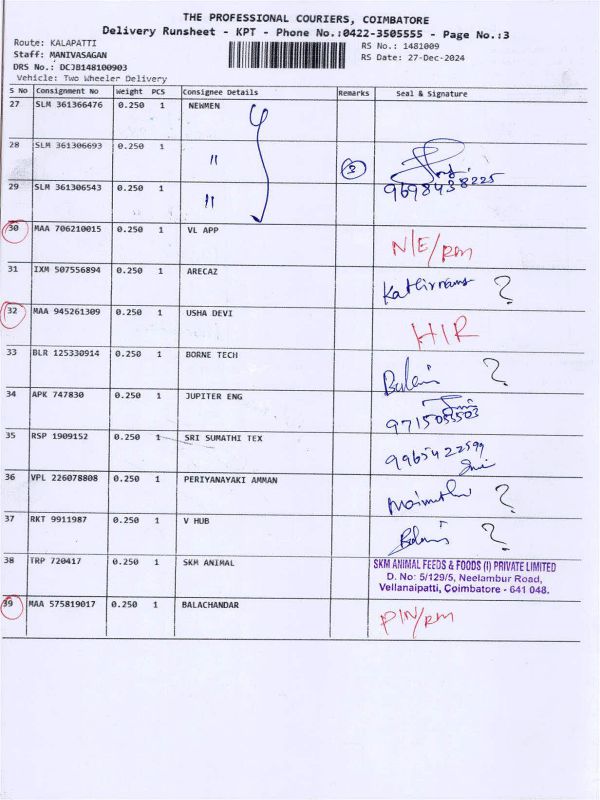 THE PROFESSIONAL COURIERS, COIMBATORE
Delivery Runsheet - KPT - Phone No.:0422-3505555 - Page No.:3
Route: KALAPATTI
RS No.: 1481009
Staff: MANIVASAGAN
RS Date: 27-Dec-2024
DRS No.: DCJB148100903
Vehicle: Two Wheeler Delivery
S No Consignment No Weight PCS Consignee Details Remarks Seal & Signature
27 SLM 361366476 0.250 1 NEWMEN
28 SLM 361306693 0.250 1 " 3
29 SLM 361306543 0.250 1 " 9698438225
30 MAA 706210015 0.250 1 VL APP N/E/RM
31 IXM 507556894 0.250 1 ARECAZ ?
32 MAA 945261309 0.250 1 USHA DEVI H/R
33 BLR 125330914 0.250 1 BORNE TECH ?
34 APK 747830 0.250 1 JUPITER ENG
35 RSP 1909152 0.250 1 SRI SUMATHI TEX 9965422599
36 VPL 226078808 0.250 1 PERIYANAYAKI AMMAN ?
37 RKT 9911987 0.250 1 V HUB ?
38 TRP 720417 0.250 1 SKM ANIMAL SKM ANIMAL FEEDS & FOODS (I) PRIVATE LIMITED
D. No: 5/129/5, Neelambur Road,
Vellanaipatti, Coimbatore - 641 048.
39 MAA 575819017 0.250 1 BALACHANDAR P/N/RM